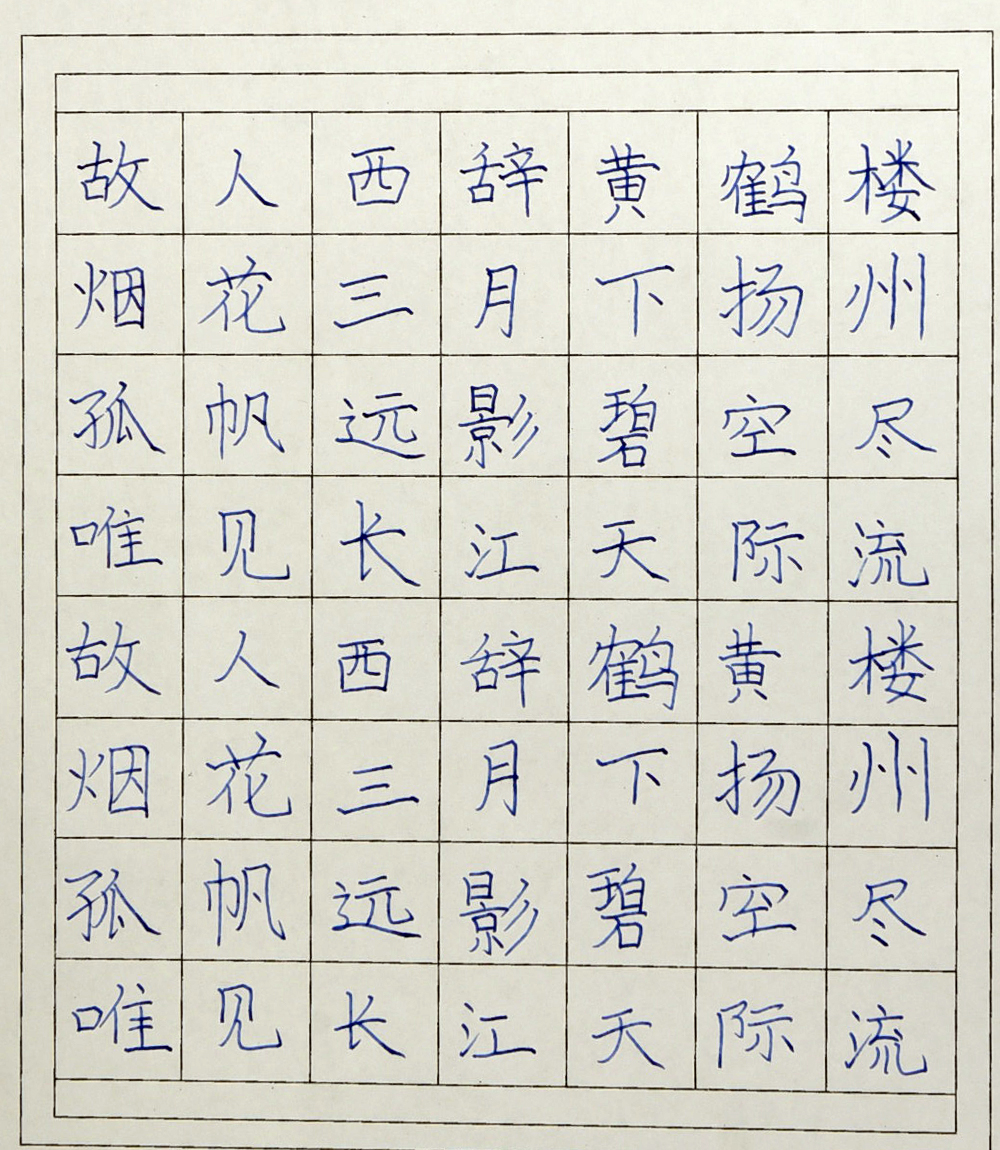 故人西辞黄鹤楼
烟花三月下扬州
孤帆远影碧空尽
唯见长江天际流
故人西辞鹤黄楼
烟花三月下扬州
孤帆远影碧空尽
唯见长江天际流